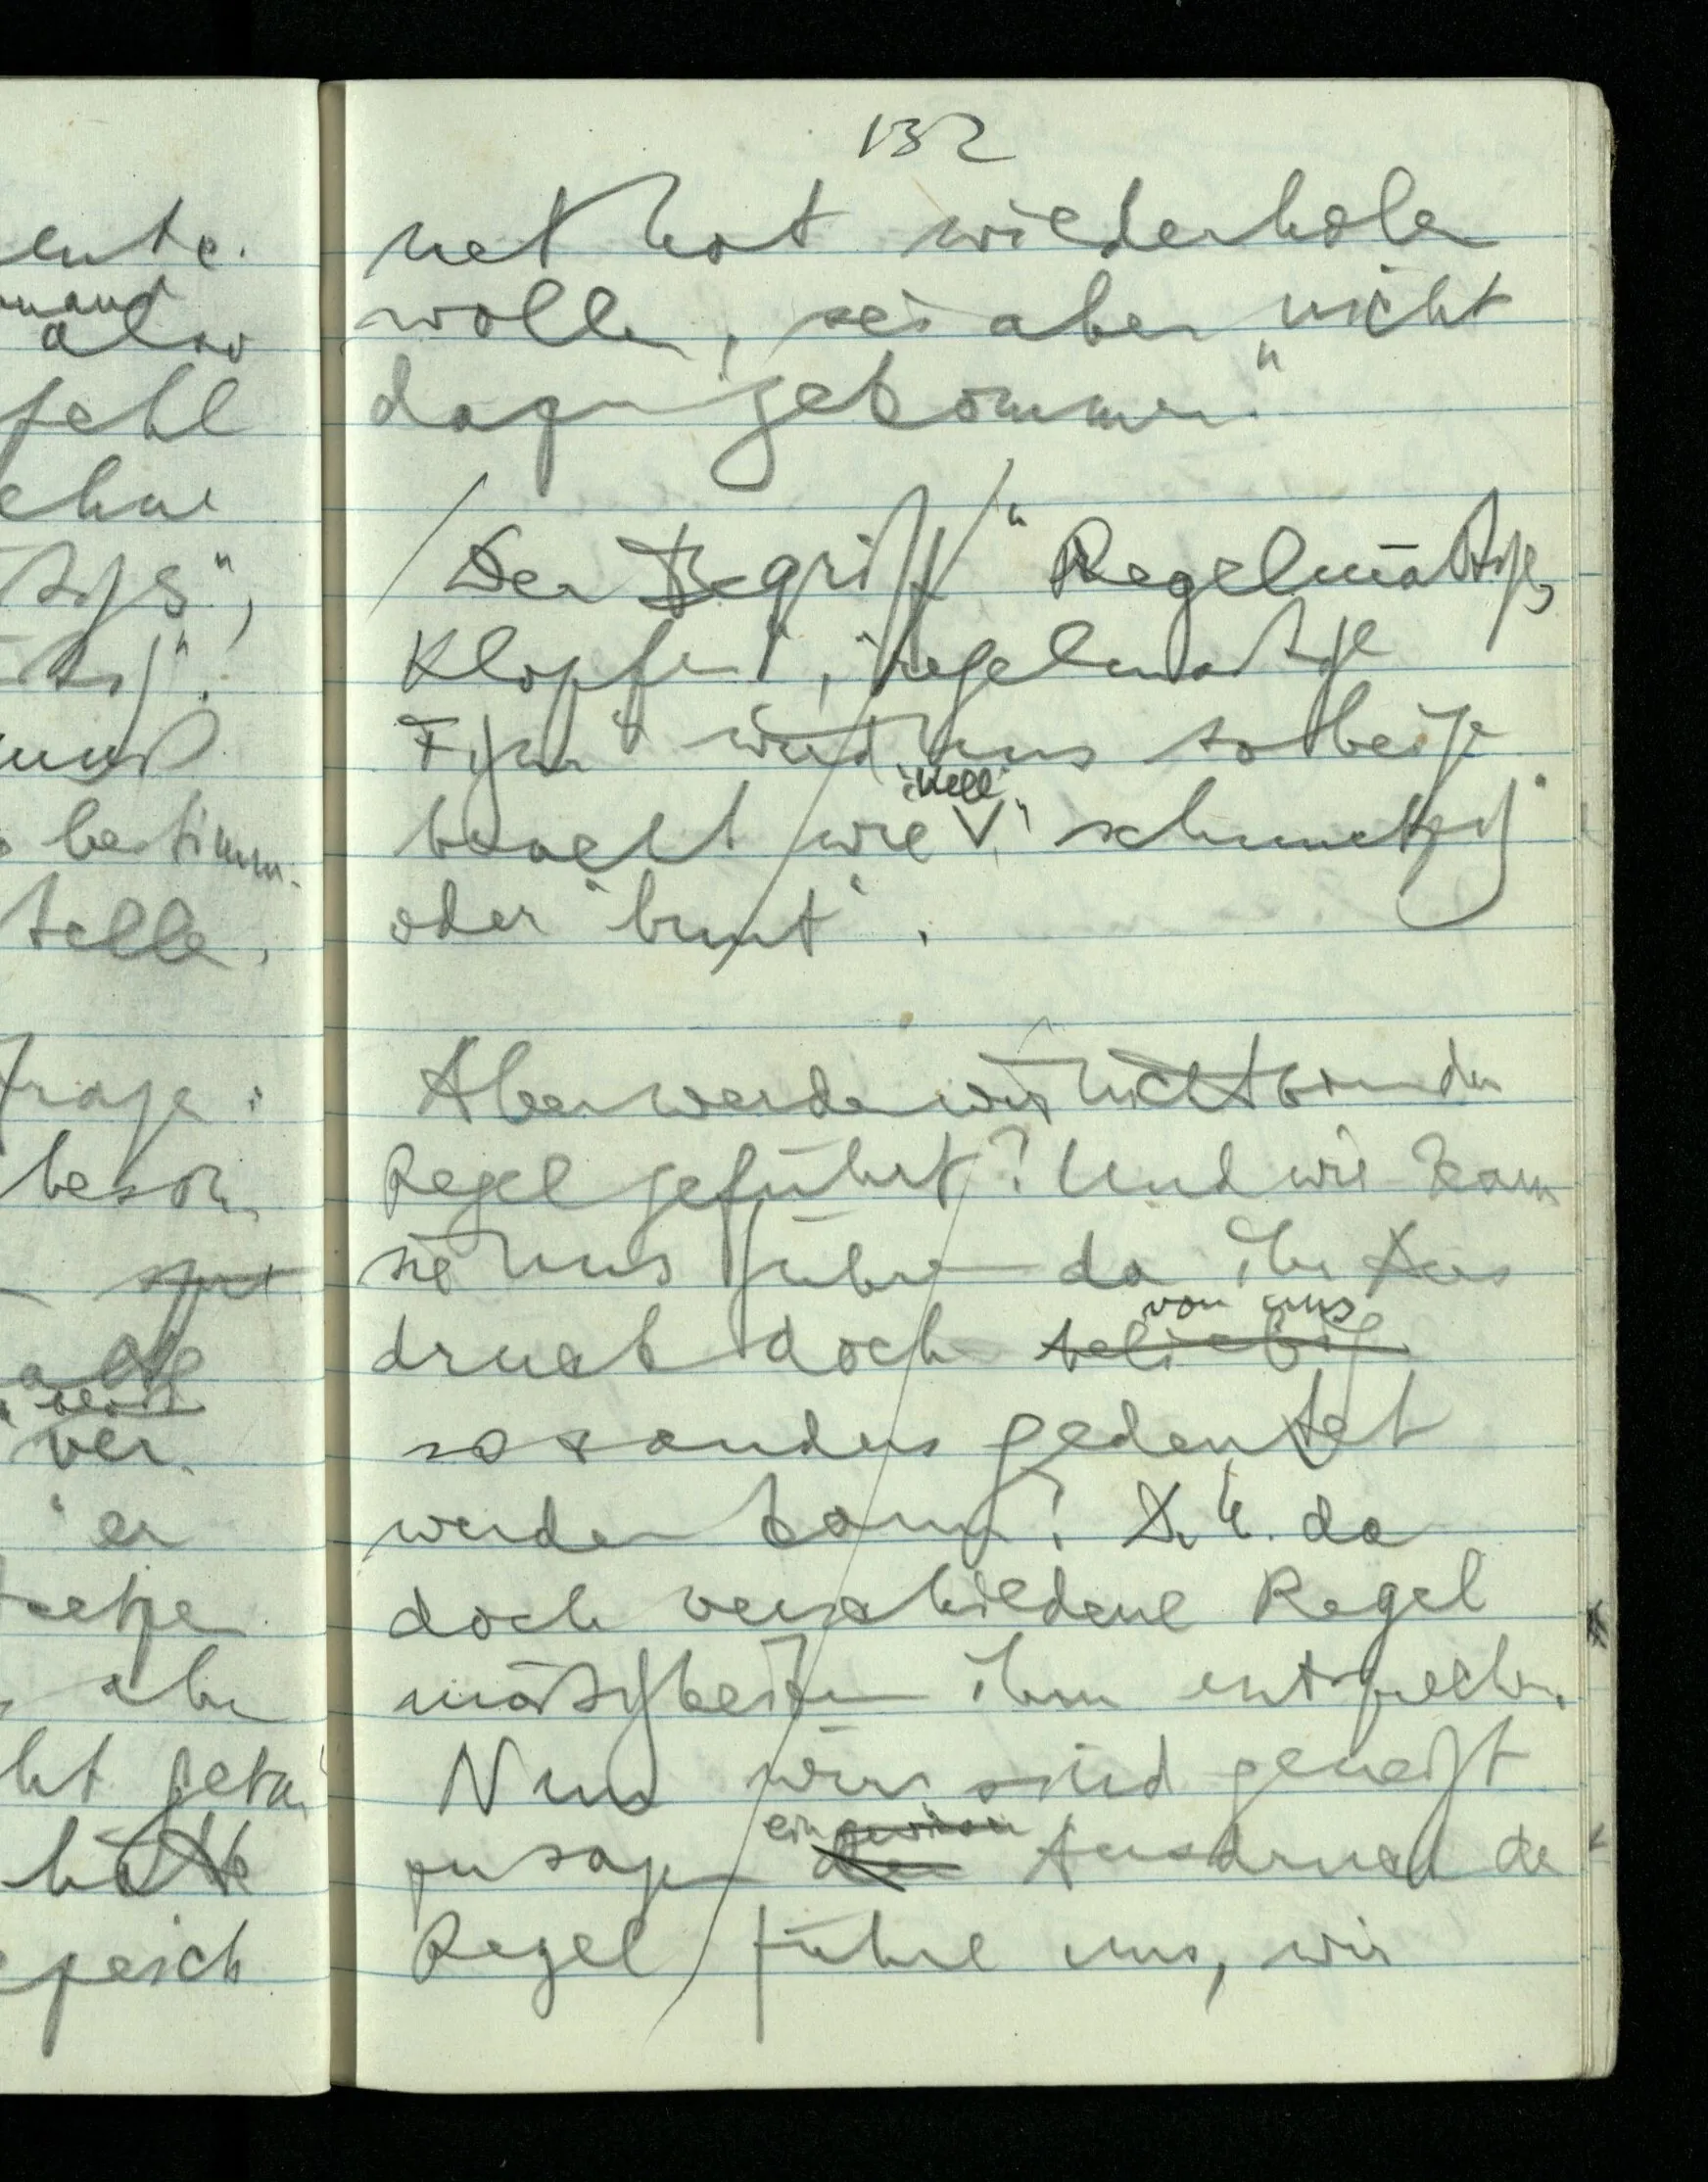 ente.
emand
also
fehl
ehne
muß
bestimm-
stelle,
Frage:
beson
ver-
er
setze
aber
ht getan
hätte
132
net hat wiederholen
wollen, sei aber nicht
dazu gekommen."
Der Begriff "Regelmäßiges
Klopfen", "regelmäßige
Figur" wird uns so beige
bracht wie 'hell', "schmutzig"
oder "bunt".
Aber werden wir nicht von der
Regel geführt? Und wie kann
sie uns führen da ihr Aus
druck doch beliebig von uns
so & anders gedeutet
werden kann? D.h. da
doch verschiedene Regel
mäßigkeiten ihm entsprechen.
Nun wir sind geneigt
zu sagen der ein gewisser Ausdruck der
Regel führe uns, wir